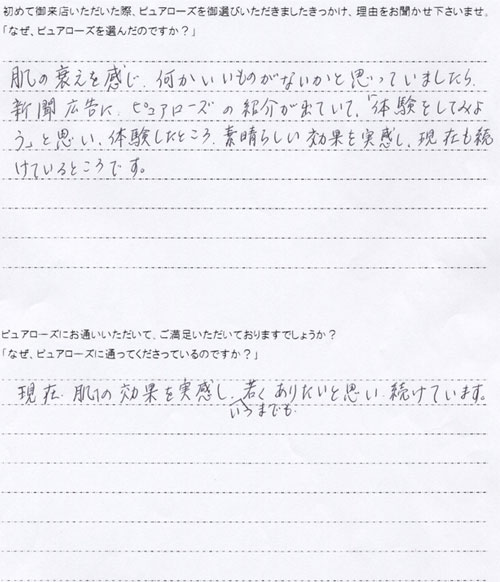 初めて御来店いただいた際、ピュアローズを御選びいただきましたきっかけ、理由をお聞かせ下さいませ。
「なぜ、ピュアローズを選んだのですか？」
肌の衰えを感じ、何かいいものがないかと思っていましたら、
新聞広告に、ピュアローズの紹介が出ていて、「体験をしてみよ
う」と思い、体験したところ、素晴らしい効果を実感し、現在も続
けているところです。
ピュアローズにお通いいただいて、ご満足いただいておりますでしょうか？
「なぜ、ピュアローズに通ってくださっているのですか？」
現在、肌の効果を実感し、若くありたいと思い、続けています。
いつまでも